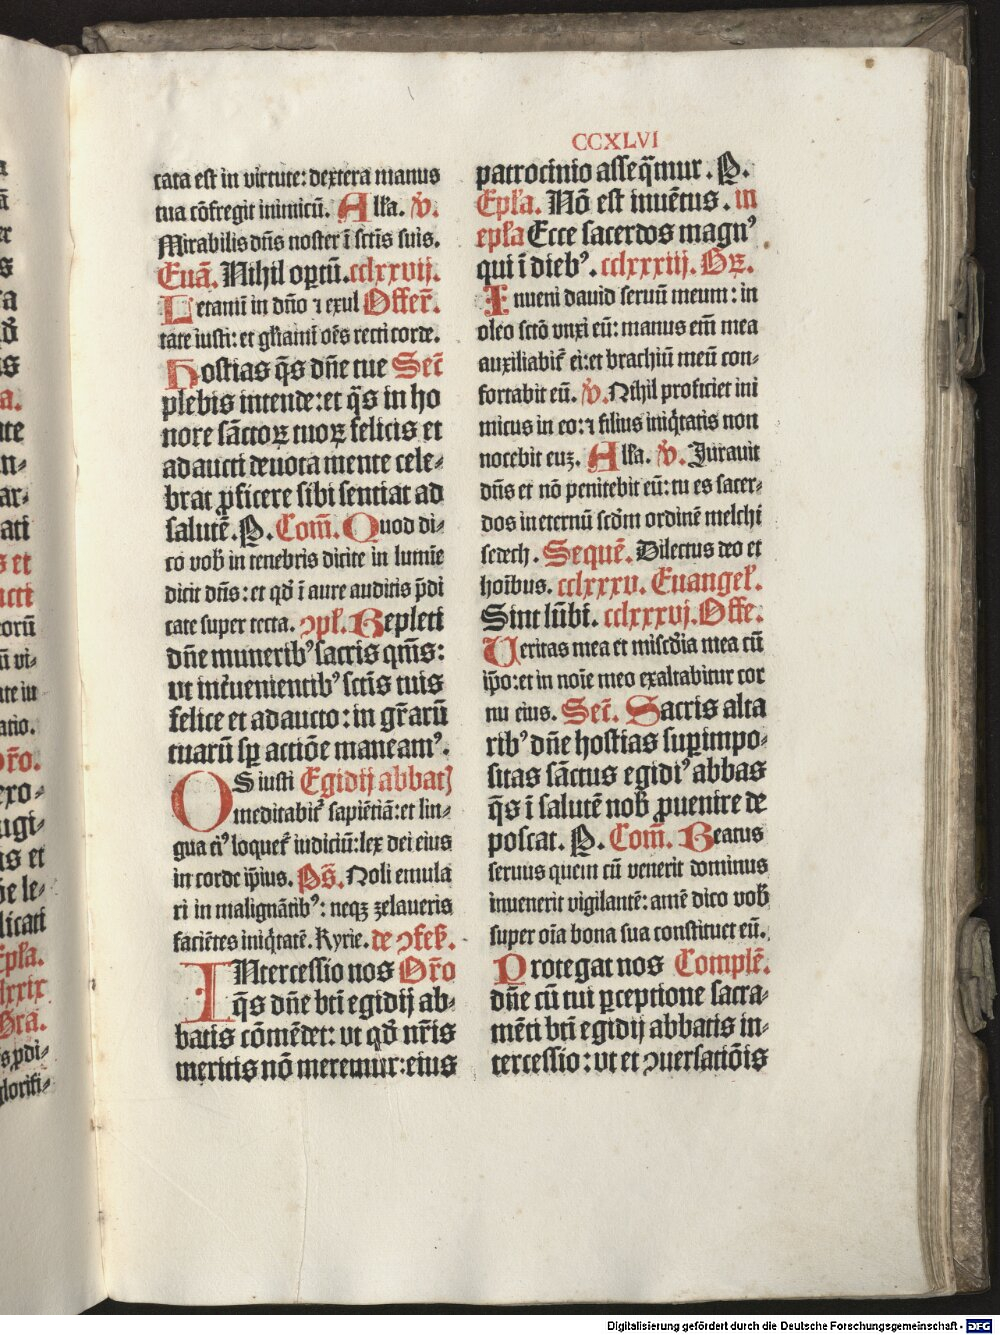 CCXLVI
tata est in virtute: dextera manus
tua cōfregit inimicū. Alľa. ℣.
Mirabilis dn̄s noster ī sctīs suis.
Euā. Nihil opertū. cclxxvij.
Letamī in dn̄o ⁊ exul Offer̄.
tate iusti: et gľiamī oēs recti corde.
Hostias q̄s dn̄e tue Secr̄
plebis intende: et q̄s in ho
nore sāctoꝝ tuoꝝ felicis et
adaucti deuota mente cele-
brat ꝓficere sibi sentiat ad
salutē. P. Com̄. Quod di-
co vob̄ in tenebris dicite in lumīe
dicit dn̄s: et qđ ī aure auditis p̄di
cate super tecta. ꝯpľ. Repleti
dn̄e munerib⁹ sacris qm̄s:
vt int̄uenientib⁹ sctīs tuis
felice et adaucto: in gr̄arū
tuarū sꝑ actiōe maneam⁹.
OS iusti Egidij abbatꝭ
meditabit̄ sapiētiā: et lin-
gua ei⁹ loquet̄ iudiciū: lex dei eius
in corde ip̄ius. Ps̄. Noli emula
ri in malignātib⁹: neqꝫ zelaueris
faciētes iniq̇tatē. Kyrie. de ꝯfes̄.
INtercessio nos Or̄o
q̄s dn̄e btī egidij ab-
batis cōmēdet: vt qđ nr̄is
meritis nō meremur: eius
patrocinio asseq̄mur. P.
Epľa. Nō est inuētus. in
epľa Ecce sacerdos magn⁹
qui ī dieb⁹. cclxxxiij. Gꝝ.
Inueni dauid seruū meum: in
oleo sctō vnxi eū: manus em̄ mea
auxiliabit̄ ei: et brachiū meū con-
fortabit eū. ℣. Nihil proficiet ini
micus in eo: ⁊ filius iniq̇tatis non
nocebit euꝫ. Alľa. ℣. Jurauit
dn̄s et nō penitebit eū: tu es sacer-
dos in eternū scđm ordinē melchi
sedech. Sequē. Dilectus deo et
hoībus. cclxxxv. Euangeľ.
Sint lūbi. cclxxxvj. Offe.
Ueritas mea et misc̄dia mea cū
ip̄o: et in noīe meo exaltabitur cor
nu eius. Secr̄. Sacris alta
rib⁹ dn̄e hostias suꝑimpo-
sitas sāctus egidi⁹ abbas
q̄s ī salutē nob̄ ꝓuenire de
poscat. P. Com̄. Beatus
seruus quem cū venerit dominus
inuenerit vigilantē: amē dico vob̄
super oīa bona sua constituet eū.
Protegat nos Complē.
dn̄e cū tui ꝑceptione sacra-
mēti btī egidij abbatis in-
tercessio: vt et ꝯuersatiōis
Digitalisierung gefördert durch die Deutsche Forschungsgemeinschaft - DFG